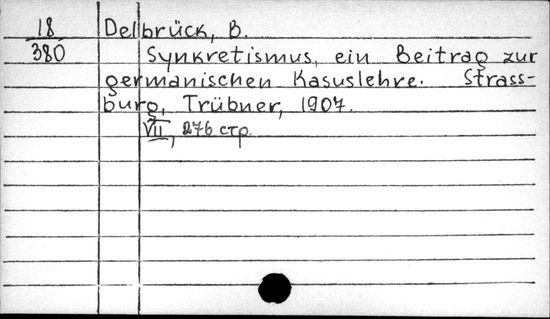 18 Delbrück, B.
380 Synkretismus, ein Beitrag zur
germanischen Kasuslehre. Strass-
burg, Trübner, 1907.
VII, 276 стр.